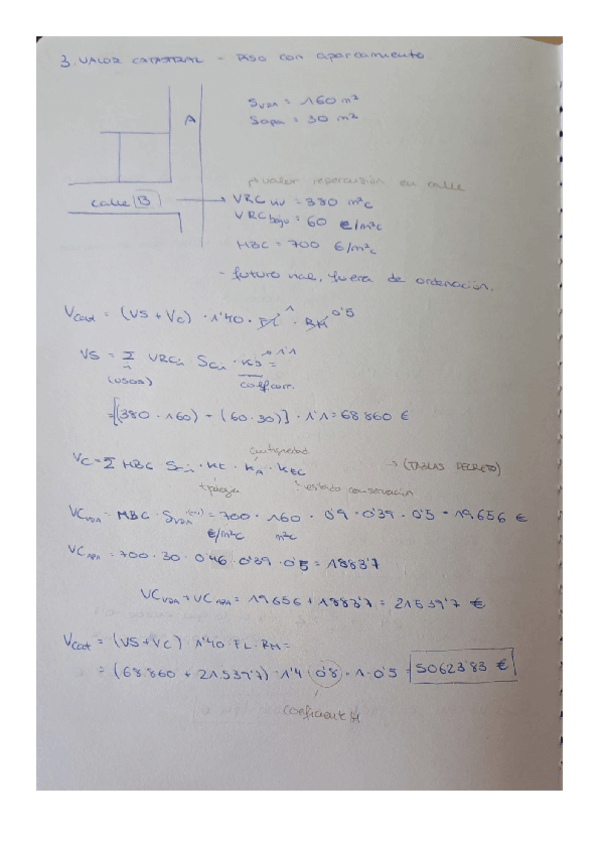 3. VALOR CATASTRAL - PISO con aparcamiento
A
SVDA = 160 m²
Sapa = 30 m²
valor repercusión en calle
calle B
VRC viv = 380 m²c
VRC bajo = 60 €/m²c
MBC = 700 €/m²c
- futuro vial, fuera de ordenación.
Vcat = (VS + Vc) · 1'40 · FL · RM
1
0'5
VS = Σ VRCi SCi · K5 =
1'1
(usos)
coef. corr.
= [(380 · 160) - (60 · 30)] · 1'1 = 68 860 €
antigüedad
VC = Σ MBC SCi · KT · KA · KEC
→ (TABLAS DECRETO)
estado conservación
VCVDA = MBC · SVDA = 700 · 160 · 0'9 · 0'39 · 0'5 = 19.656 €
€/m²c m²c
VCAPA = 700 · 30 · 0'46 · 0'39 · 0'5 = 1883'7
VCVDA + VCAPA = 19656 + 1883'7 = 21539'7 €
Vcat = (VS + Vc) · 1'40 · FL · RM =
= (68.860 + 21539'7) · 1'4 (0'8) · 1 · 0'5 = 50623'83 €
coeficiente H